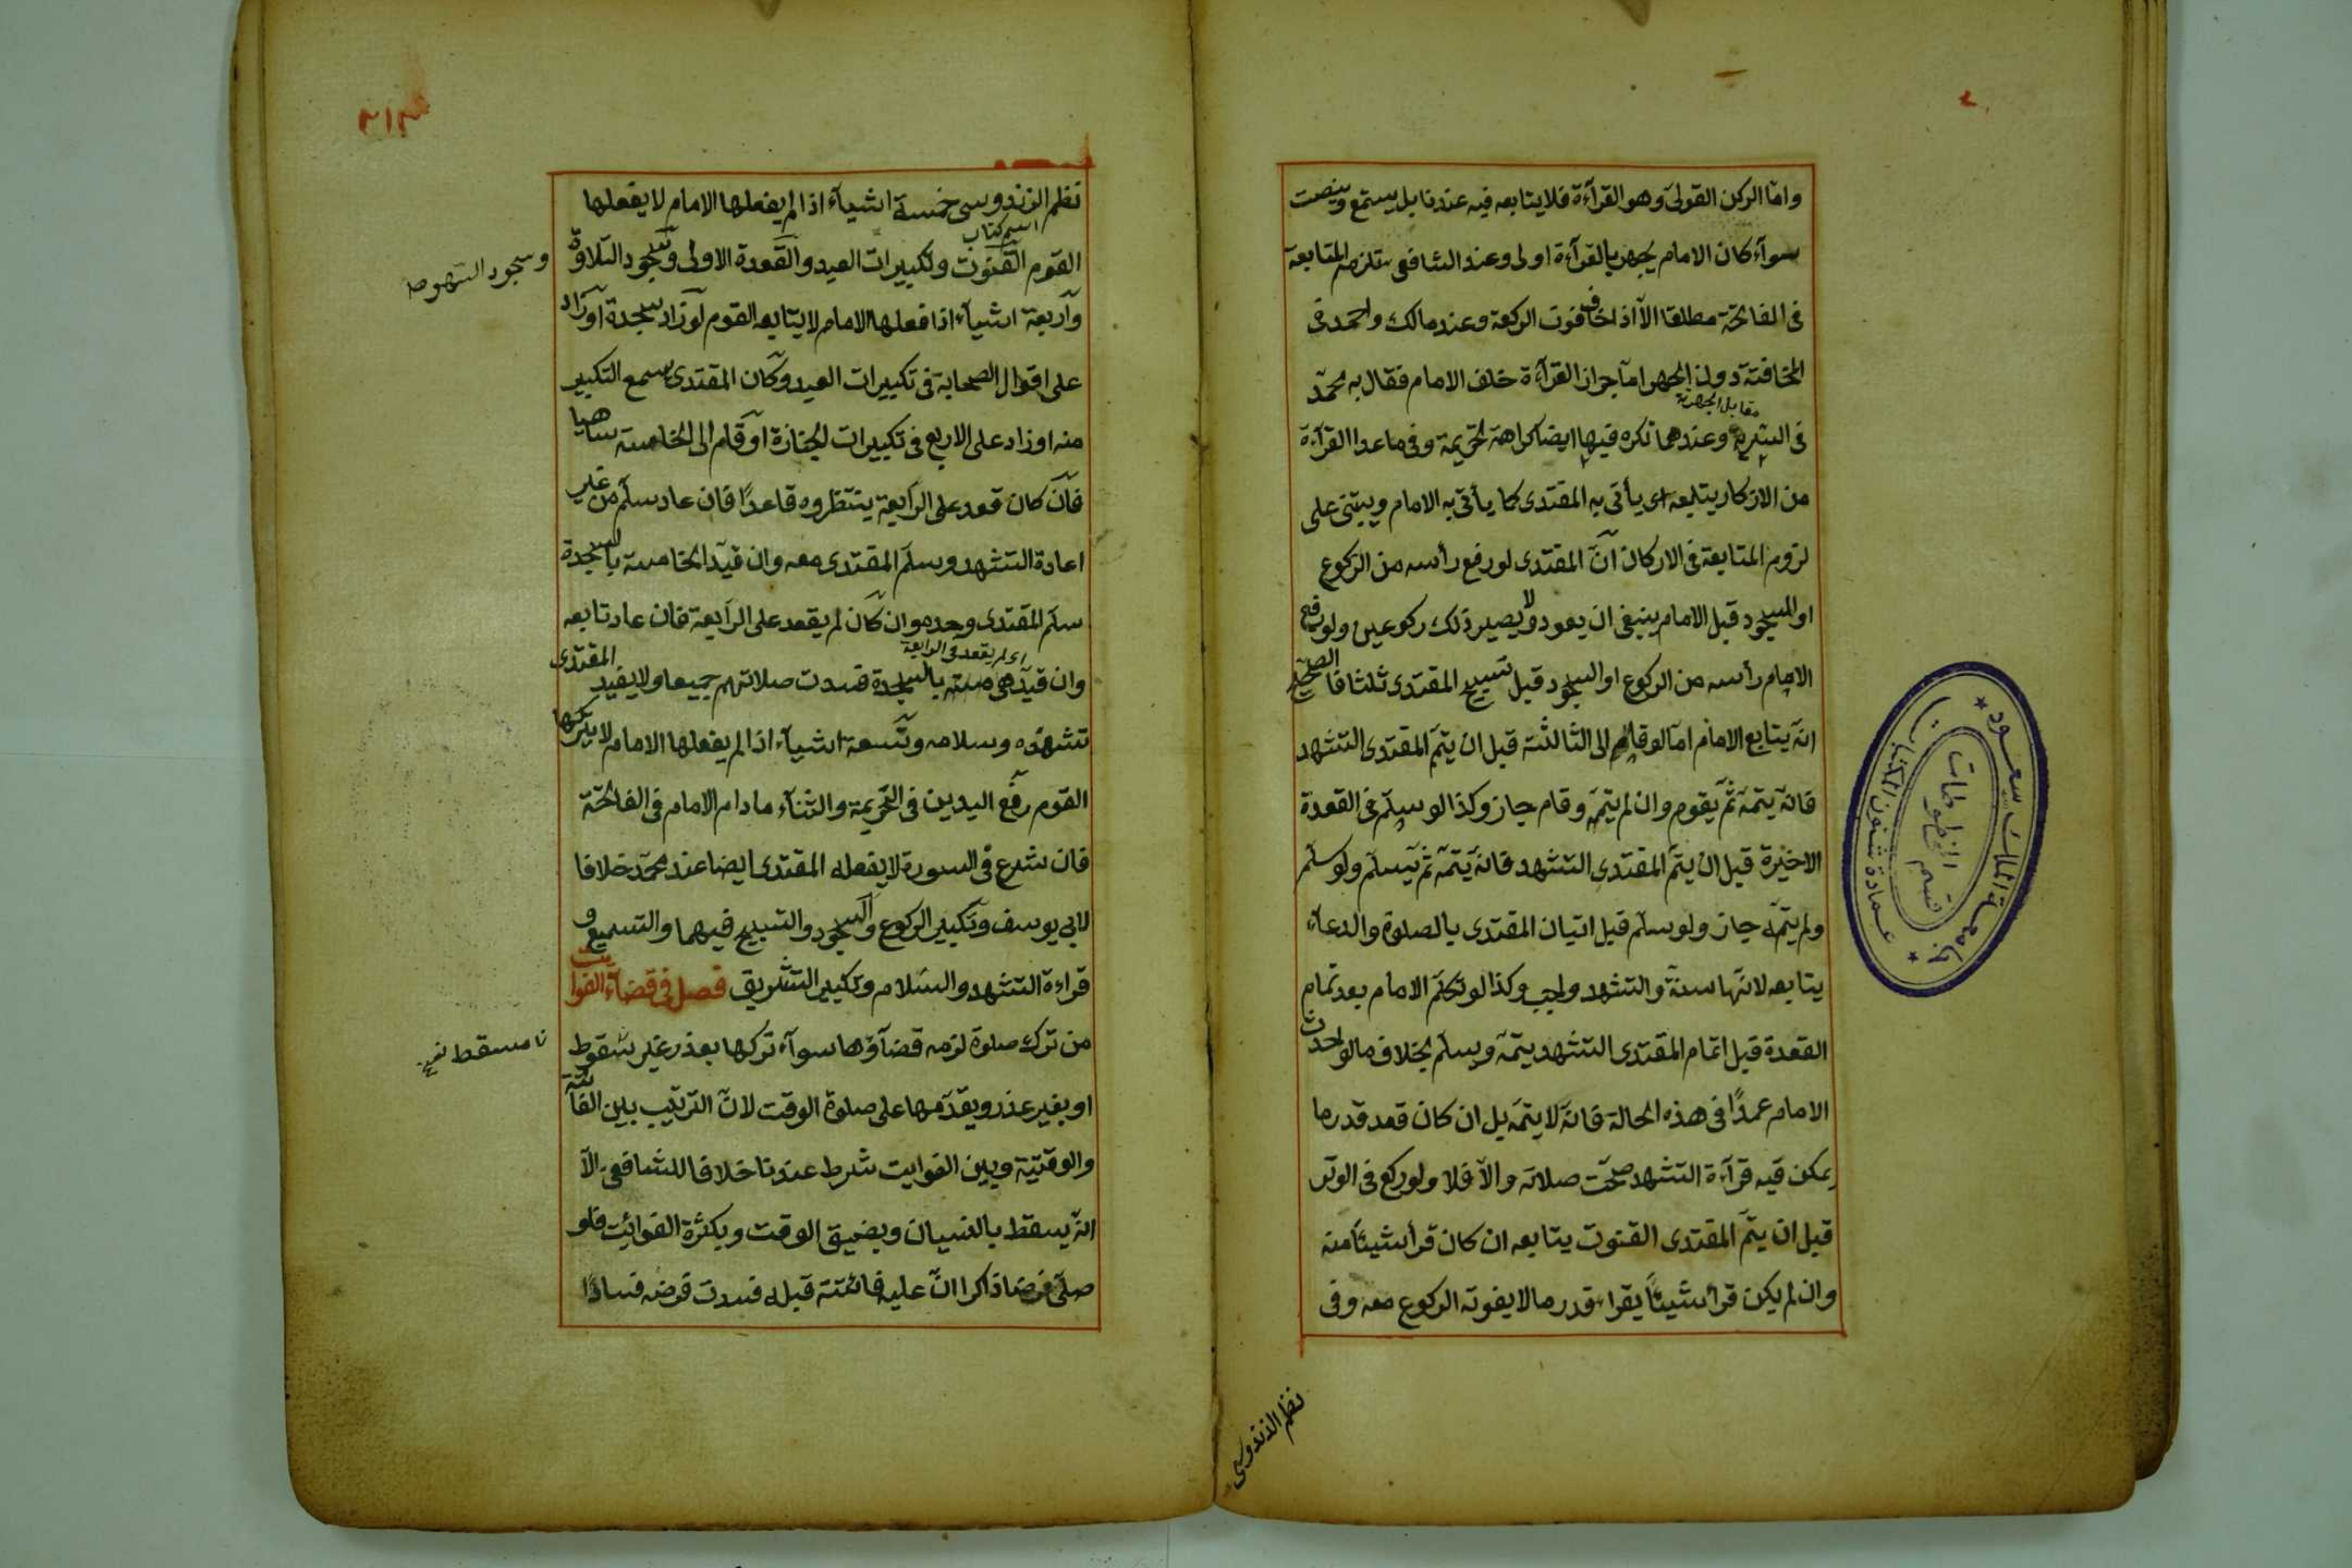 واما الركن القولى وهو القرآءة فلا يتابعه فيه عندنا بل يستمع وينصت
سوآء كان الامام يجهر بالقرآءة اولى وعند الشافعى تلزمه المتابعة
فى الفاتحة مطلقا الاّ اذا خاف فوت الركعة وعند مالك واحمد فى
المخافتة دون الجهر امّا جواز القرآءة خلف الامام فقال به محمّد
مقابل الجهرية
فى السّرية وعندهما تكره فيها ايضا كراهة تحريمة وفى ما عدا القرآءة
من الاذكار يتابعه اى يأتى به المقتدى كما يأتى به الامام ويبتنى على
لزوم المتابعة فى الاركان انّ المقتدى لو رفع رأسه من الركوع
او السجود قبل الامام ينبغى ان يعود ولا يصير ذلك ركوعين ولو رفع
الامام رأسه من الركوع او السجود قبل تسبيح المقتدى ثلثا فالصحيح
انّه يتابع الامام امّا لو قام الى الثالثة قبل ان يتمّ المقتدى التشهد
فانّه يتمّه ثمّ يقوم وان لم يتمّه وقام جاز وكذا لو سلّم فى القعدة
الاخيرة قبل ان يتمّ المقتدى التشهد فانّه يتمّه ثمّ يسلّم ولو سلّم
ولم يتمّه جاز ولو سلّم قبل اتيان المقتدى بالصلوة والدعآء
يتابعه لانّها سنّة والتشهد واجب وكذا لو تكلّم الامام بعد تمام
القعدة قبل اتمام المقتدى التشهد يتمّه ويسلّم بخلاف ما لو احدث
الامام عمدًا فى هذه الحالة فانّه لا يتمّه بل ان كان قعد قدر ما
يمكن فيه قرآءة التشهد صحّت صلاته والاّ فلا ولو ركع فى الوتر
قبل ان يتمّ المقتدى القنوت يتابعه ان كان قرأ شيئًا منه
وان لم يكن قرأ شيئًا يقرأ قدر ما لا يفوته الركوع معه وفى
نظم الزندوسى
جامعة الملك سعود
عمادة شئون المكتبات
قسم المخطوطات
٣١٣
نظم الزندوسى خمسة اشيآء اذا لم يفعلها الامام لا يفعلها
اسم كتاب
القوم القنوت وتكبيرات العيد والقعدة الاولى وسجود التلاوة
وسجود السهو صح
واربعة اشيآء اذا فعلها الامام لا يتابعه القوم لو زاد سجدة او زاد
على اقوال الصحابة فى تكبيرات العيد وكان المقتدى يسمع التكبير
منه او زاد على الاربع فى تكبيرات الجنازة او قام الى الخامسة ساهيا
فان كان قعد على الرابعة ينتظروه قاعدًا فان عاد سلّم من غير
اعادة التشهد وسلّم المقتدى معه وان قيّد الخامسة بالسجدة
سلّم المقتدى وحده وان كان لم يقعد على الرابعة فان عاد تابعه
اى لم يقعد فى الرابعة
وان قيّد الخامسة بالسجدة فسدت صلاتهم جميعا ولا يفيد المقتدى
تشهّده وسلامه وتسعة اشيآء اذا لم يفعلها الامام لا يتركها
القوم رفع اليدين فى التحريمة والثنآء ما دام الامام فى الفاتحة
فان شرع فى السورة لا يفعله المقتدى ايضا عند محمّد خلافا
لابى يوسف وتكبير الركوع والسجود والتسبيح فيهما والتسميع و
قراءة التشهد والسّلام وتكبير التشريق فصل فى قضآء الفوايت
من ترك صلوة لزمه قضآؤها سوآء تركها بعذر غير سقوط
او بغير عذر ويقدّمها على صلوة الوقت لانّ الترتيب بين الفائتة
والوقتية وبين الفوايت شرط عندنا خلافا للشافعى الاّ
انّه يسقط بالنسيان وبضيق الوقت وبكثرة الفوائت فلو
صلّى فرضا ذاكرا انّ عليه فائتة قبله فسدت فرضه فسادًا